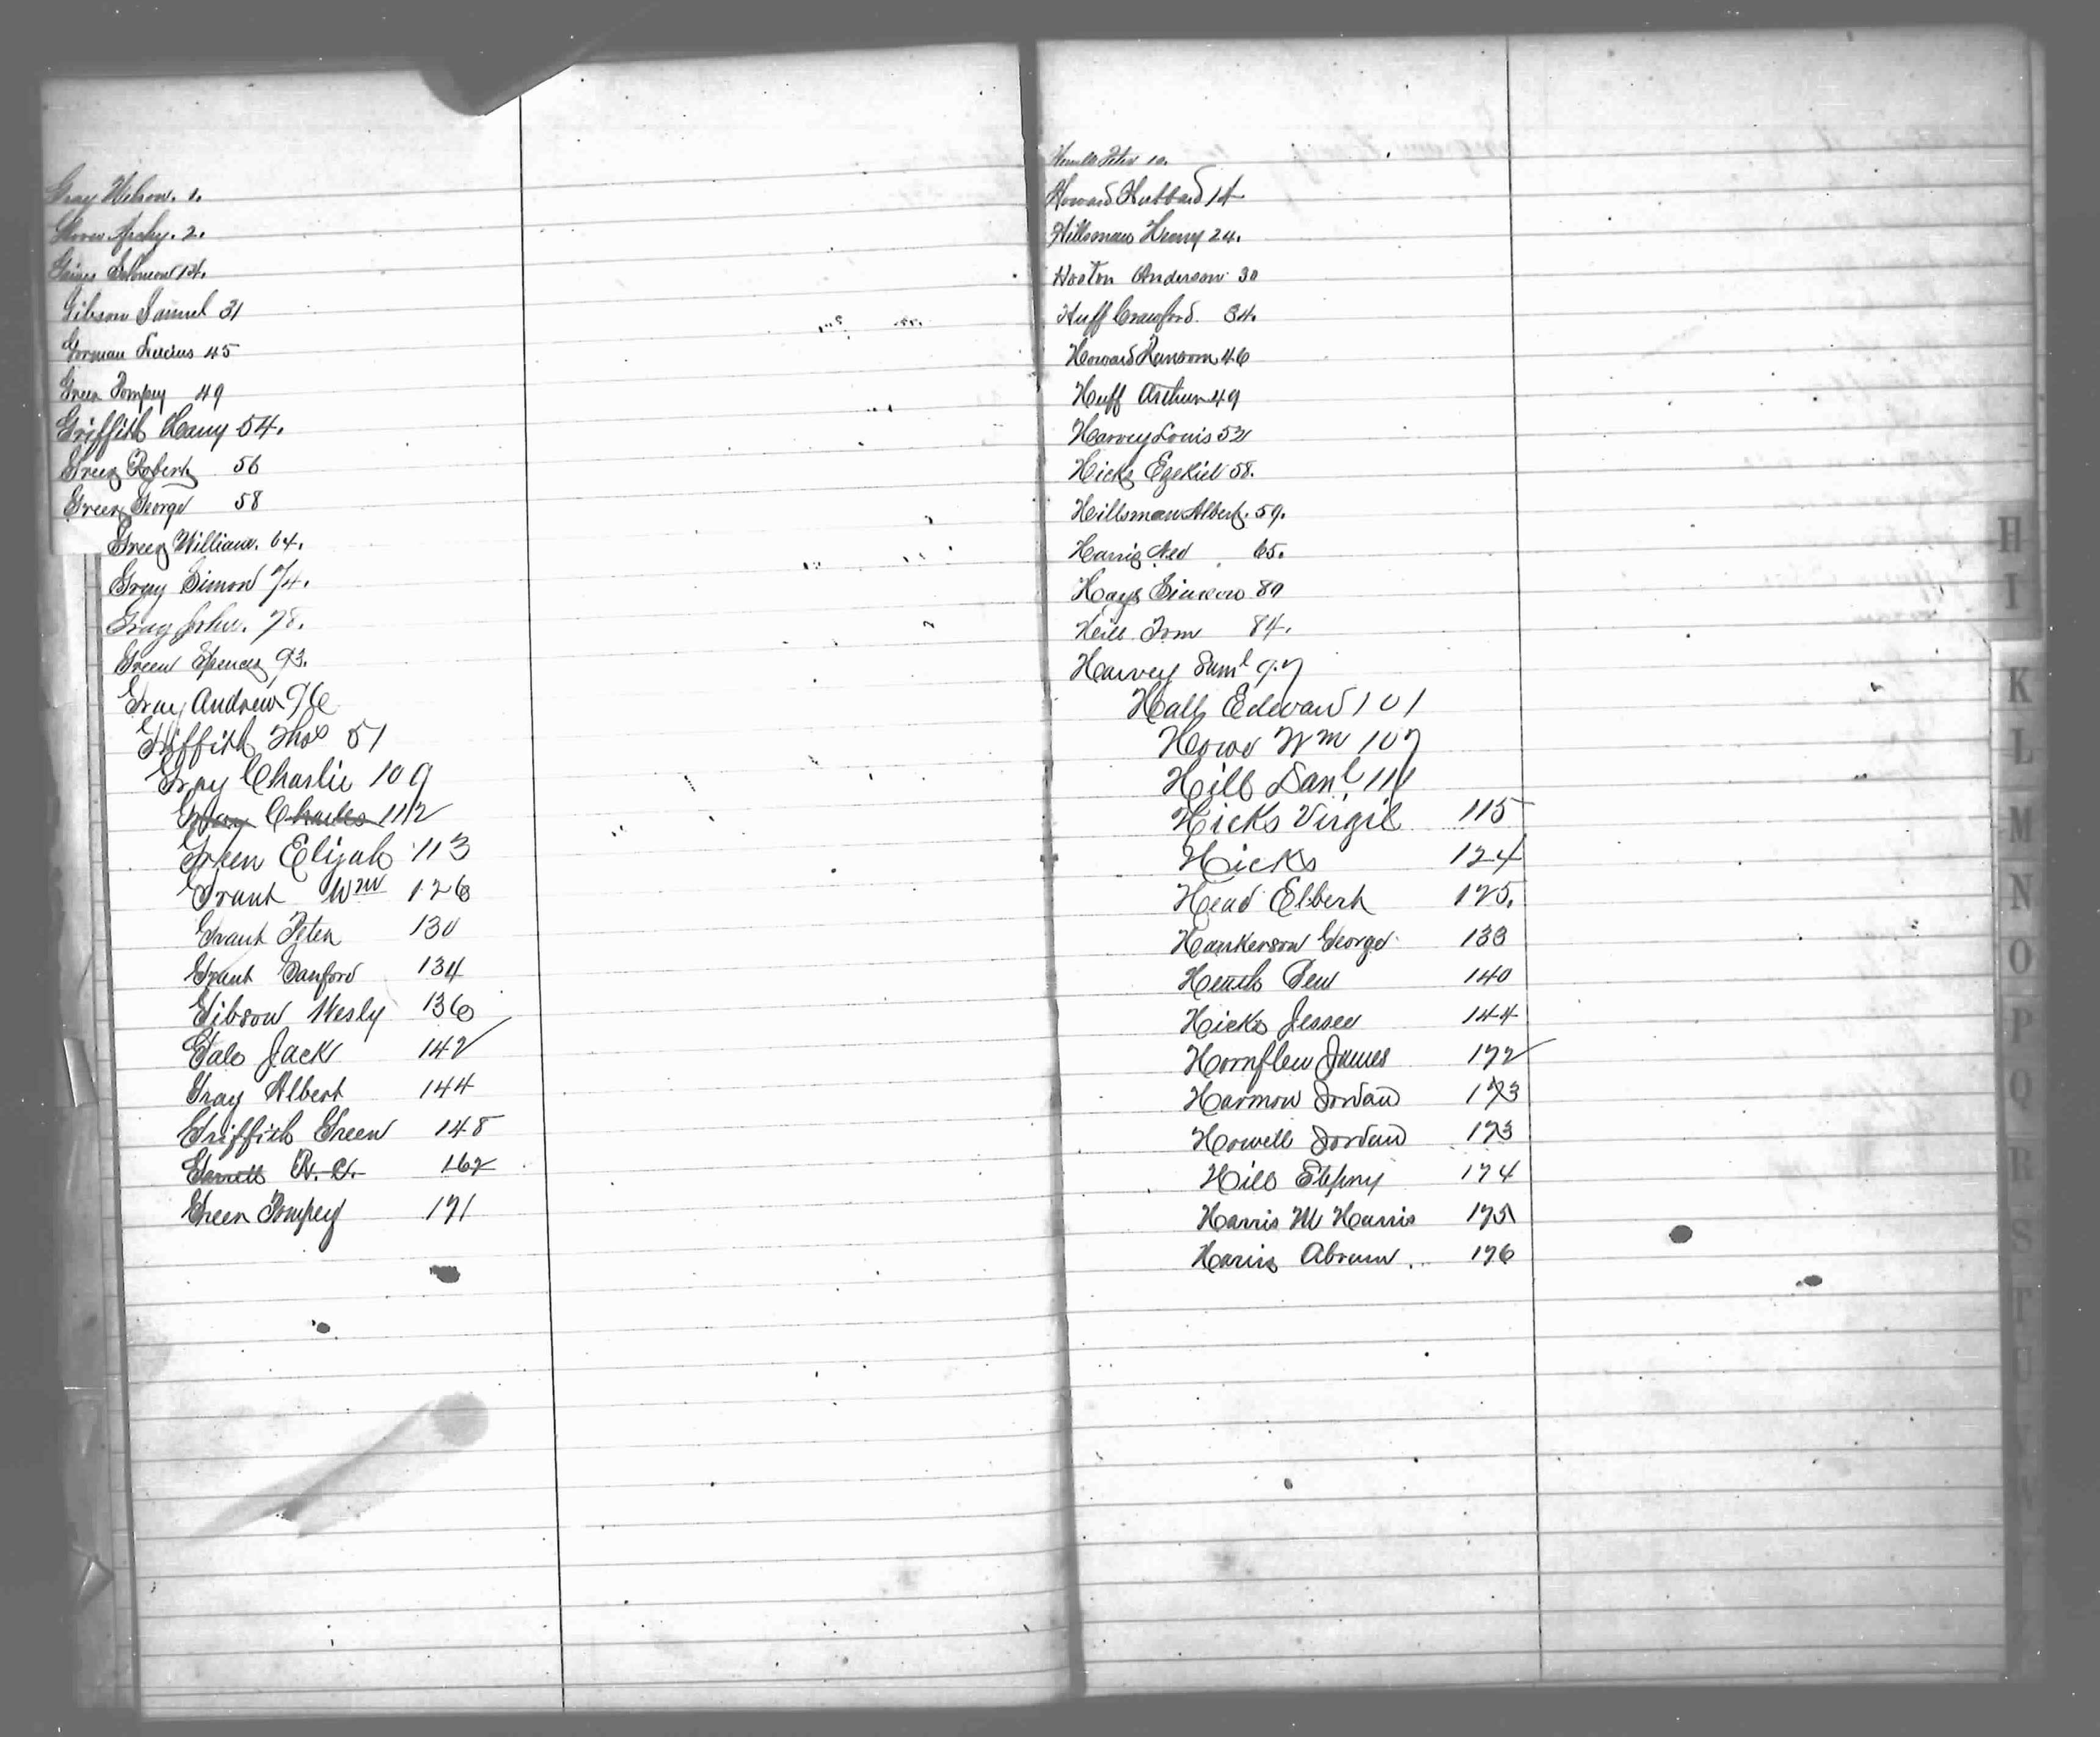 Gray Nelson. 1.
Archy. 2.
Gaines Solomon 14.
Gibson Samuel 31
Gorman Lucius 45
Green Pompey 49
Griffith Harry 54.
Green Robert 56
Green George 58
Green William. 64.
Gray Simon 74.
Gray John. 78.
Green Spencer 93.
Gray Andrew 96
Griffith Thos 51
Gray Charlie 109
Gray Charles 112
Green Elizah 113
Grant Wm 126
Grant Peter 130
Grant Sanford 134
Gibson Wesly 136
Gale Jack 142
Gray Albert 144
Griffith Green 148
Garrett 162
Green Pompey 171
Peter 10.
Howard Hubbard 14
Hillsman Henry 24.
Hoston Anderson 30
Huff Crawford. 34.
Howard Ransom 46
Huff Arthur 49
Harvey Louis 52
Hicks Ezekiel 58.
Hillsman Albert. 59.
Harris Ned 65.
Hays 80
Hill Tom 84.
Harvey Saml 97
Hall Edward 101
Howe Wm 107
Hill Danl 111
Hicks Virgil 115
Hicks 124
Head Elbert 125.
Hankerson George 133
Heath 140
Hicks Jessee 144
James 172
Harmon Jordan 173
Howell Jordan 173
Hill Stepny 174
Harris M Harris 175
Harris Abram 176
H
I
K
L
M
N
O
P
Q
R
S
T
U